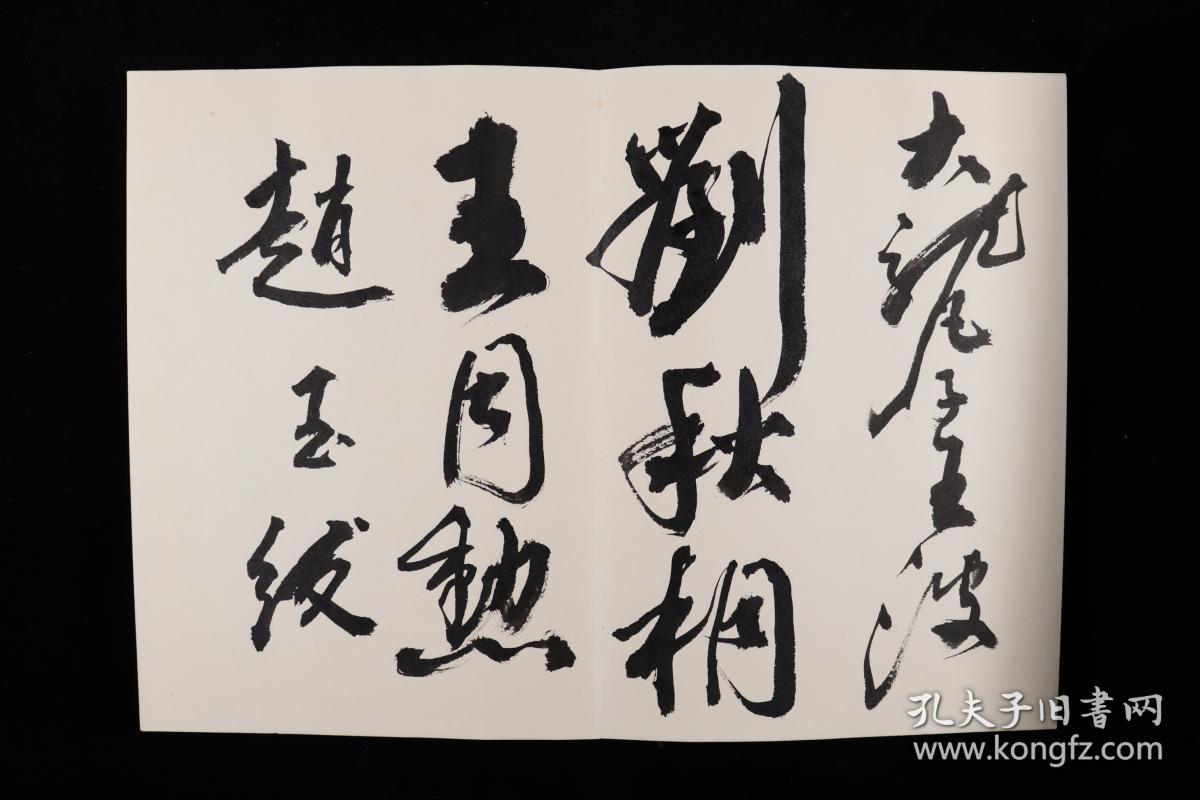 大龍王波
劉秋桐
王周勲
趙玉
孔夫子旧書网
www.kongfz.com